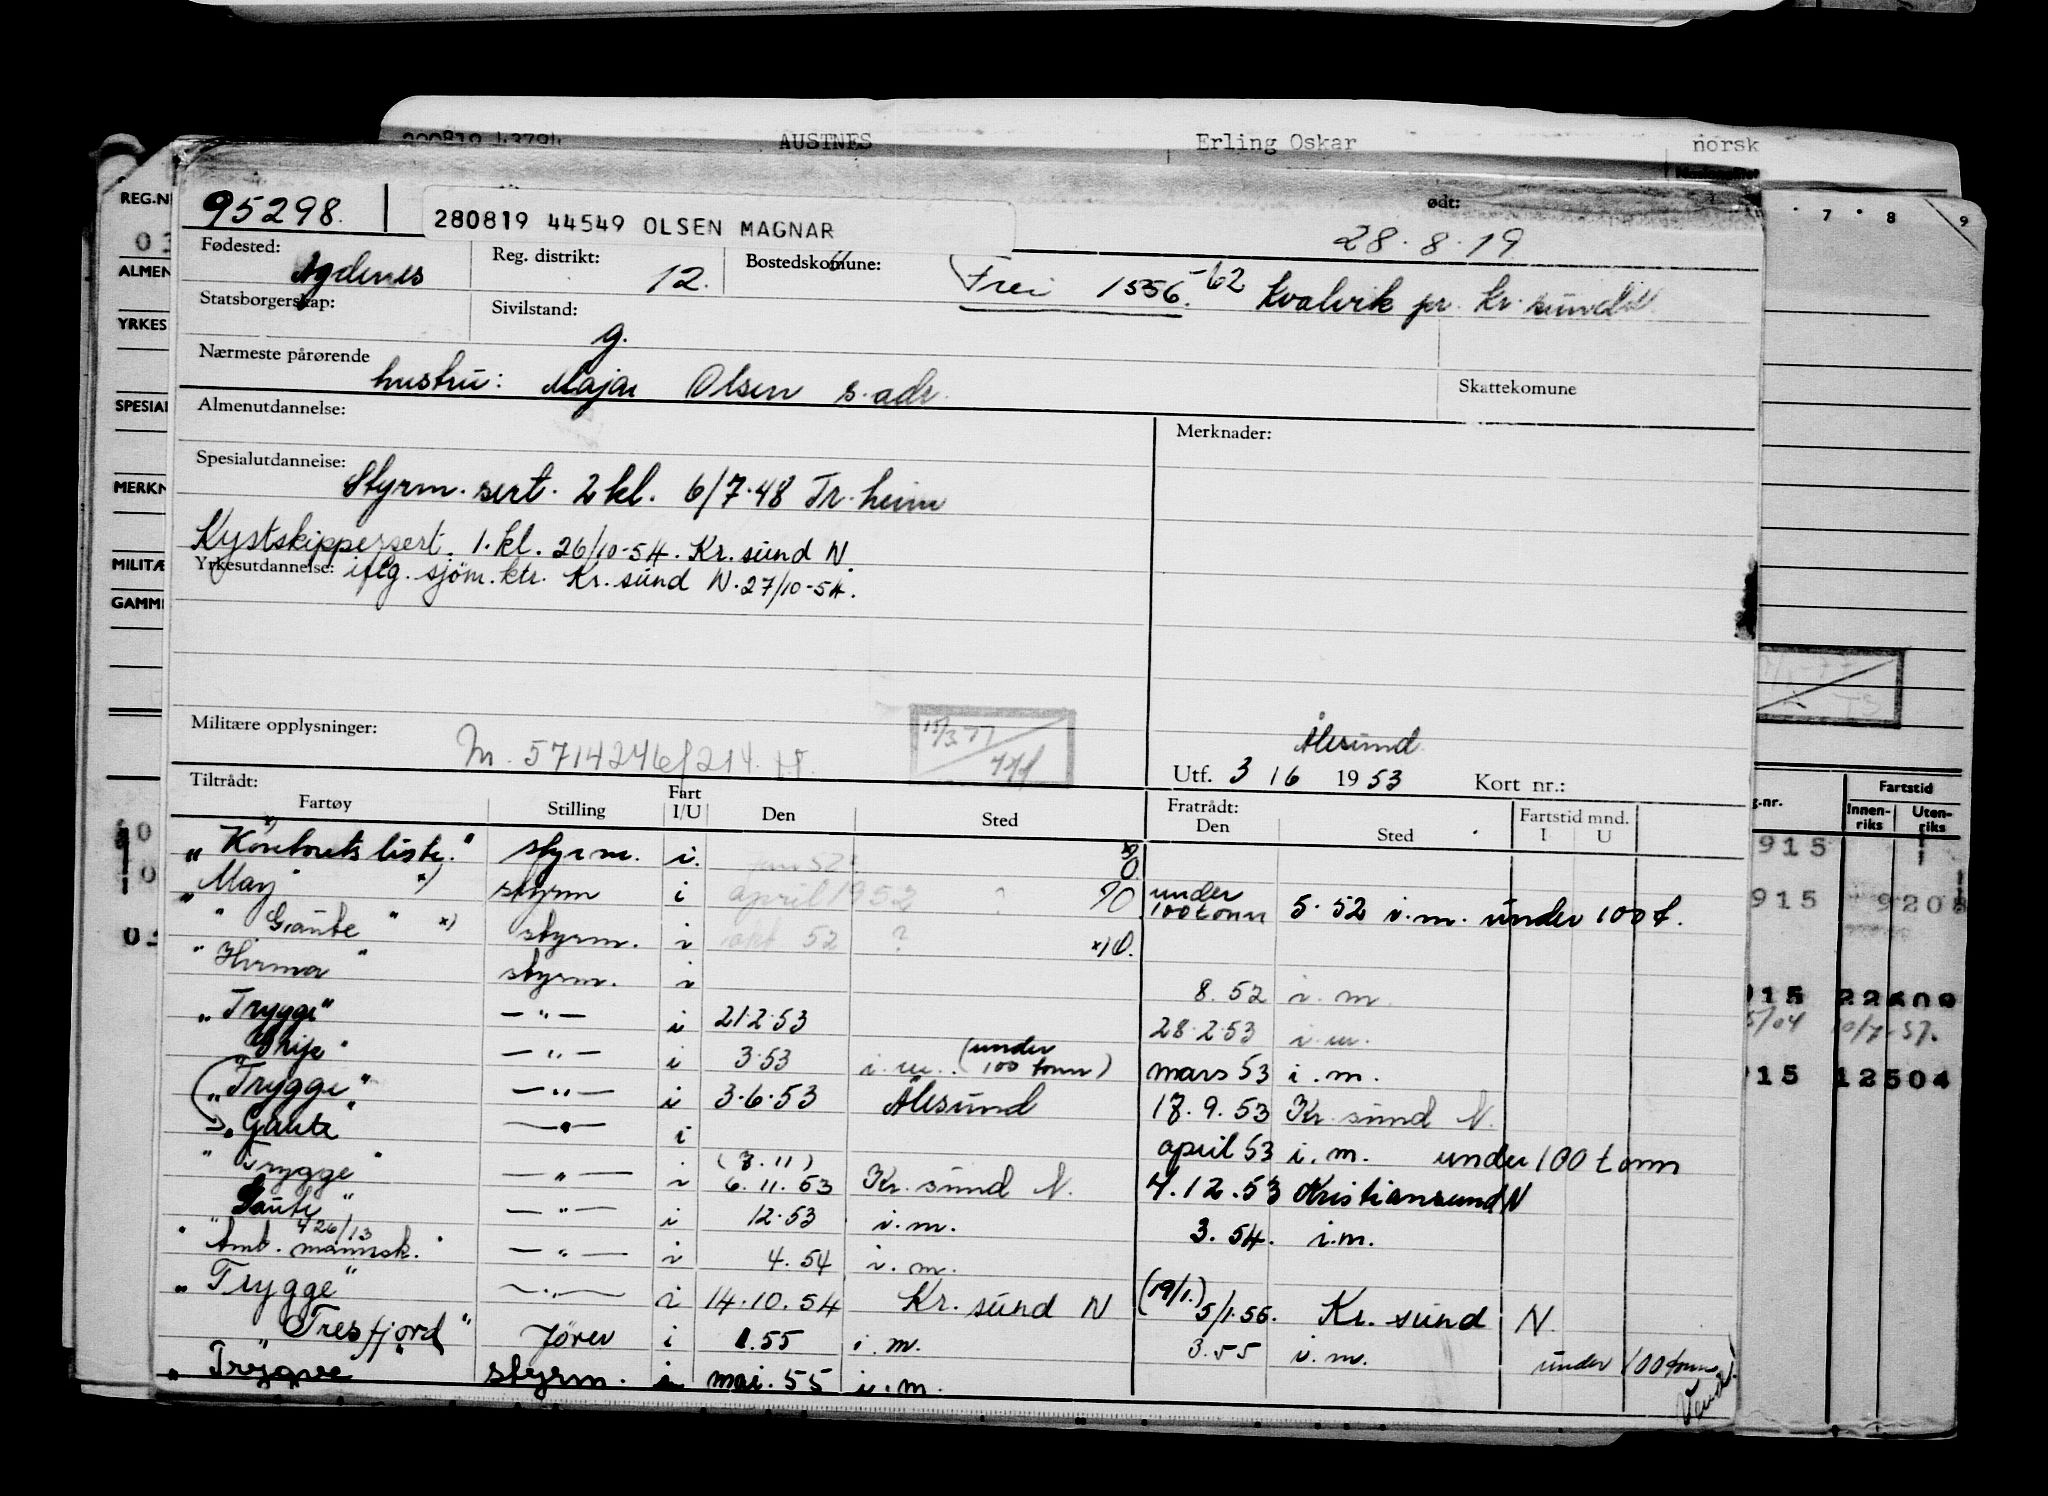 290819 43794 AUSTNES Erling Oskar norsk
REG.N
ALMEN
YRKES
SPESIAL
MERKN
MILITÆ
GAMM
7 8 9
95298. 280819 44549 OLSEN MAGNAR ødt: 28.8.19
Fødested: Agdenes Reg. distrikt: 12. Bostedskomune: Frei 1556. -62 Kvalvik pr. Kr. sund
Statsborgerskap: Sivilstand: g.
Nærmeste pårørende hustru: Maja Olsen s. adr. Skattekomune
Almenutdannelse: Merknader:
Spesialutdannelse: Styrm. sert. 2 kl. 6/7.48 Tr. heim
Kystskippersert. 1. kl. 26/10-54. Kr. sund N.
Yrkesutdannelse: iflg. sjøm. ktr. Kr. sund N. 27/10-54.
Militære opplysninger: M. 5714246/214. H. 15/3 77
Ålesund
Utf. 3 / 6 1953 Kort nr.:
Tiltrådt: Fratrådt:
Fartøy Stilling Fart I/U Den Sted Den Sted Fartstid mnd. I U
"Kontorets liste." styrm. i. jan 52.
"May" x) styrm i april 1952 ? under 100 tonn 5.52 i.m. under 100 t.
"Gaute" x) styrm. i okt 52 ? x) 0.
"Hirma" styrm. i 8.52 i.m.
"Trygge" — " — i 21.2.53 28.2.53 i.m.
— " — i 3.53 i.m. (under 100 tonn) mars 53 i.m.
"Trygge" — " — i 3.6.53 Ålesund 17.9.53 Kr. sund N.
"Gaute" — " — i april 53 i.m. under 100 tonn
"Trygge" — " — i (7.11) 6.11.53 Kr. sund N. 7.12.53 Kristiansund N
"Gaute" — " — i 12.53 i.m. 3.54. i.m.
"Amb. mannsk." 426/13 — " — i 4.54 i.m.
"Trygge" — " — i 14.10.54 Kr. sund N (19/1.) 5/1.55. Kr. sund N.
"Tresfjord" fører i 1.55 i.m. 3.55 i.m. under 100 tonn
"Trygve" styrm. i mai. 55 i.m. Vend!
g.-nr. Fartstid
Innen-riks Uten-riks
915
915 9208
915 22609
5/04 10/7-57.
915 12504